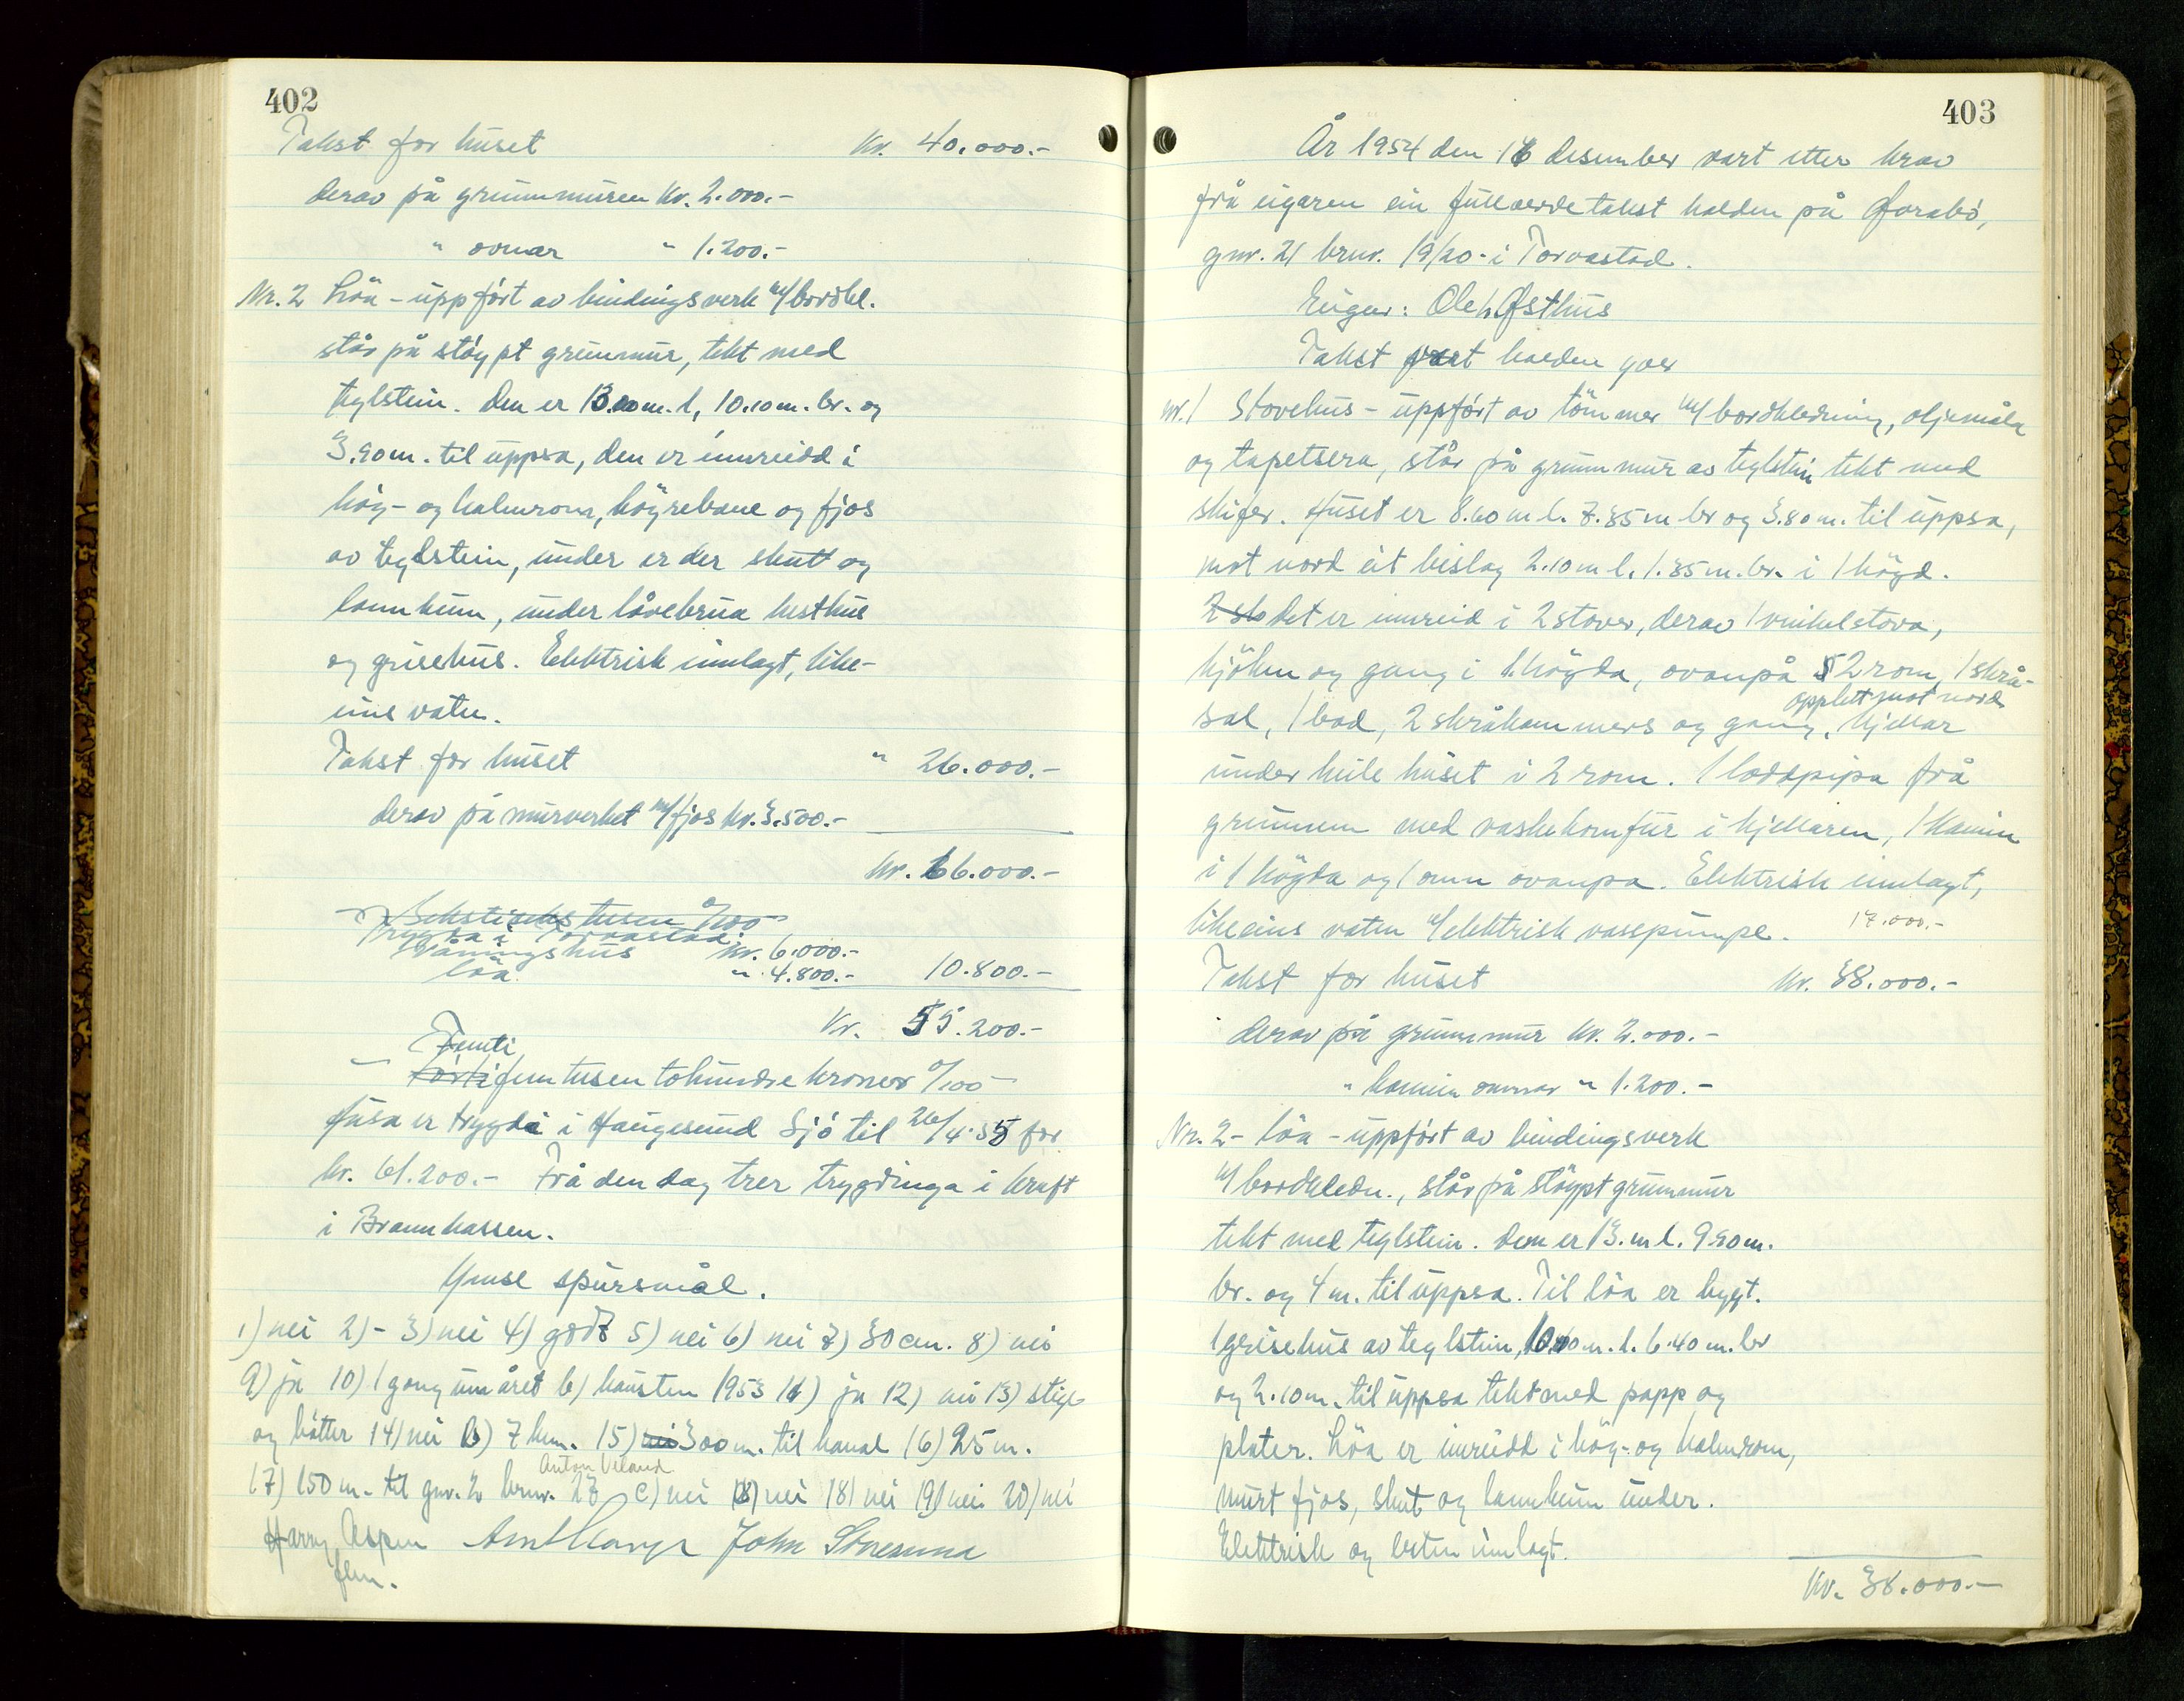 402
Takst for huset kr. 40.000.-
derav på grunnmuren kr. 2.000.-
" ovnar " 1.200.-
Nr. 2 Löa - uppfört av bindingsverk m/bordkl.
står på stöypt grunnmur, tekt med
teglstein. Den er 13.00m. l, 10.10m. br. og
3.90m. til uppsa, den er innreidd i
höy- og halmrom, köyrebane og fjos
av teglstein, under er der skutt og
lannkum, under låvebrua hesthus
og grisehus. Elektrisk innlagt, like-
eins vatn.
Takst for huset " 26.000.-
derav på murverket m/fjos kr. 3.500.-
kr. 66.000.-
Sekstiseks tusen 0/100
Trygda i Torvastad:
Våningshus kr. 6.000.-
Löa " 4.800.- 10.800.-
Kr. 55.200.-
Femti
förti femtusen tohundre kroner 0/100
Husa er trygda i Haugesund Sjö til 26/4-55 for
kr. 61.200.- Frå den dag trer trygdinga i kraft
i Brannkassen.
Ymse spursmål.
1) nei 2) - 3) nei 4) godt 5) nei 6) nei 7) 30 cm. 8) nei
9) ja 10) 1 gong um året b) hausten 1953 11) ja 12) nei 13) stige
og bötter 14) nei b) 7 km. 15) nei 300 m. til kanal 16) 25 m.
Anton Veland
17) 150 m. til gnr. 2 brnr. 27 c) nei 18) nei 18) nei 19) nei 20) nei
Harry Aspen John Stnesunna
fm.
403
År 1954 den 16 desember vart etter krav
frå eigaren ein fullverdetakst halden på Forabö,
gnr. 21 brnr. 19/20 - i Torvastad.
Eigar: Ole h. Østhus
Takst vart halden yver
nr. 1 Stovehus - uppfört av tömmer m/bordkledning, oljemåla
og tapetsera, står på grunnmur av teglstein tekt med
skifer. Huset er 8.60 m l. 7.35 m br og 3.80 m. til uppsa,
mot nord eit bislag 2.10 m l. 1.35 m. br. i 1 högd.
2 sto det er innreid i 2 stover, derav 1 vinkelstova,
kjöken og gang i 1. högda, ovanpå 2 rom, 1 skrå-
opplett mot nord
sal, 1 bad, 2 skråkammers og gang, kjellar
under heile huset i 2 rom. 1 loddpipa frå
grunnen med vaskekomfur i kjellaren, 1 kamin
i 1 högda og 1 omn ovanpa. Elektrisk innlagt,
likeeins vatn m/elektrisk vasspumpe. 17.000.-
Takst for huset kr. 38.000.-
derav på grunnmur kr. 2.000.-
" kamin omnar " 1.200.-
Nr. 2 - Löa - uppfört av bindingsverk
m/bordkledn., står på stöypt grunnmur
tekt med teglstein. Den er 13. m l. 9.90 m.
br. og 4 m. til uppsa. Til löa er bygt.
1 grisehus av teglstein, 10.40 m. l. 6.40 m. br
og 2.10 m. til uppsa tekt med papp og
plater. Löa er innreidd i höy- og halmrom,
murt fjos, skut og lannkum under.
Elektrisk og vatn innlagt.
Kr. 38.000.-